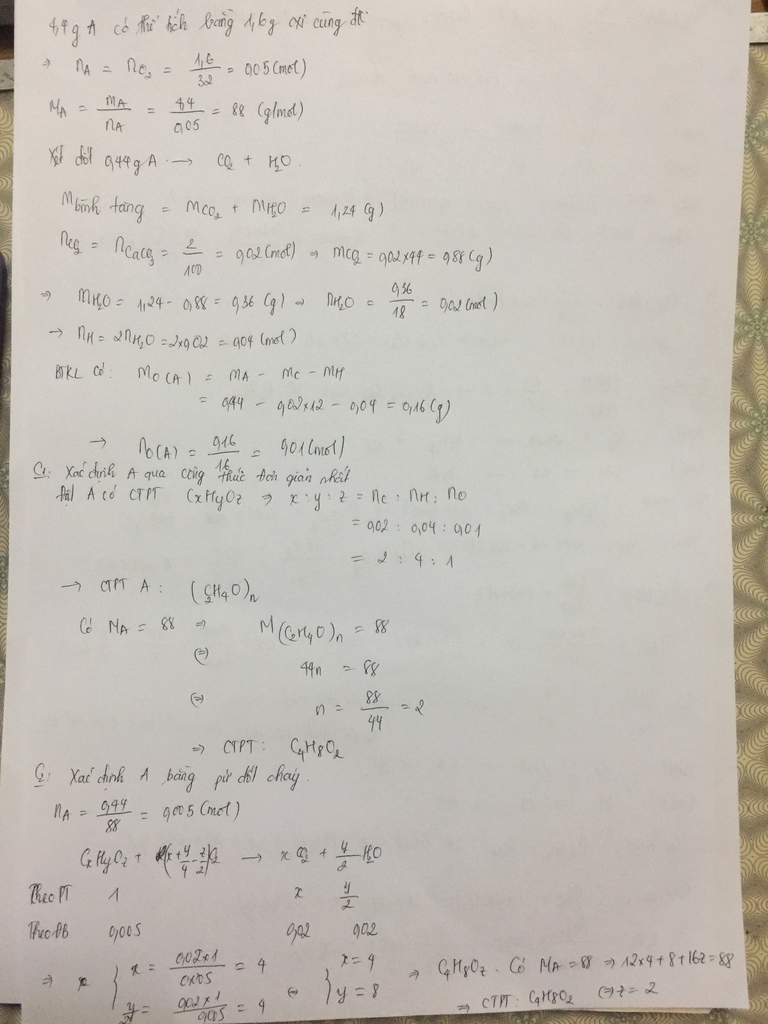 4,4g A có thể tích bằng 1,6g oxi cùng đk
⇒ nA = nO2 = 1,6/32 = 0,05 (mol)
MA = mA/nA = 4,4/0,05 = 88 (g/mol)
Xét đốt 0,44g A → CO2 + H2O.
mbình tăng = mCO2 + mH2O = 1,24 (g)
nCO2 = nCaCO3 = 2/100 = 0,02 (mol) ⇒ mCO2 = 0,02×44 = 0,88 (g)
⇒ mH2O = 1,24 - 0,88 = 0,36 (g) ⇒ nH2O = 0,36/18 = 0,02 (mol)
→ nH = 2nH2O = 2×0,02 = 0,04 (mol)
BTKL có: mO(A) = mA - mC - mH
= 0,44 - 0,02×12 - 0,04 = 0,16 (g)
→ nO(A) = 0,16/16 = 0,01 (mol)
C1: Xác định A qua công thức đơn giản nhất
Đặt A có CTPT CxHyOz ⇒ x : y : z = nC : nH : nO
= 0,02 : 0,04 : 0,01
= 2 : 4 : 1
→ CTPT A: (C2H4O)n
Có MA = 88 ⇒ M(C2H4O)n = 88
(=) 44n = 88
(=) n = 88/44 = 2
⇒ CTPT: C4H8O2
C2: Xác định A bằng pư đốt cháy.
nA = 0,44/88 = 0,005 (mol)
CxHyOz + (x + y/4 - z/2)O2 → x CO2 + y/2 H2O
Theo PT 1 x y/2
Theo ĐB 0,005 0,02 0,02
⇒ { x = 0,02×1/0,005 = 4 (=) { x = 4 ⇒ C4H8Oz. Có MA = 88 ⇒ 12×4 + 8 + 16z = 88
y/2 = 0,02×1/0,005 = 4 y = 8 ⇒ CTPT: C4H8O2 (=) z = 2